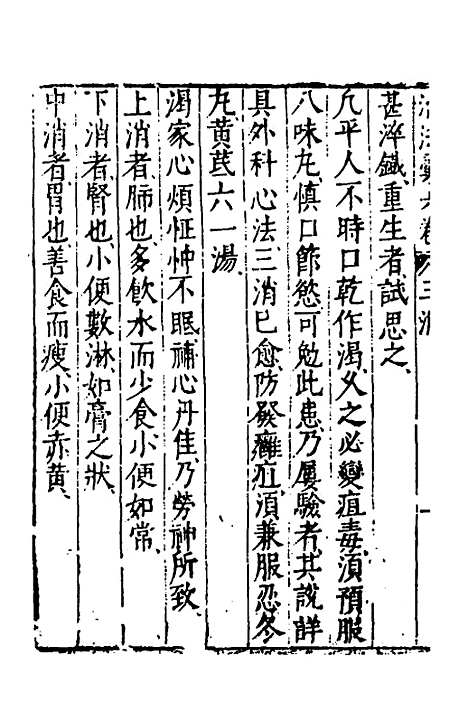 治法彙六卷 三消 一
甚淬鐵重生者試思之
凢平人不時口乾作渴久之必變疽毒須預服
八味丸慎口節慾可勉此患乃屢驗者其說詳
具外科心法三消已愈防發癰疽須兼服忍冬
丸黃芪六一湯
渴家心煩怔忡不眠補心丹佳乃勞神所致
上消者肺也多飲水而少食小便如常
下消者腎也小便數淋如膏之狀
中消者胃也善食而瘦小便赤黃